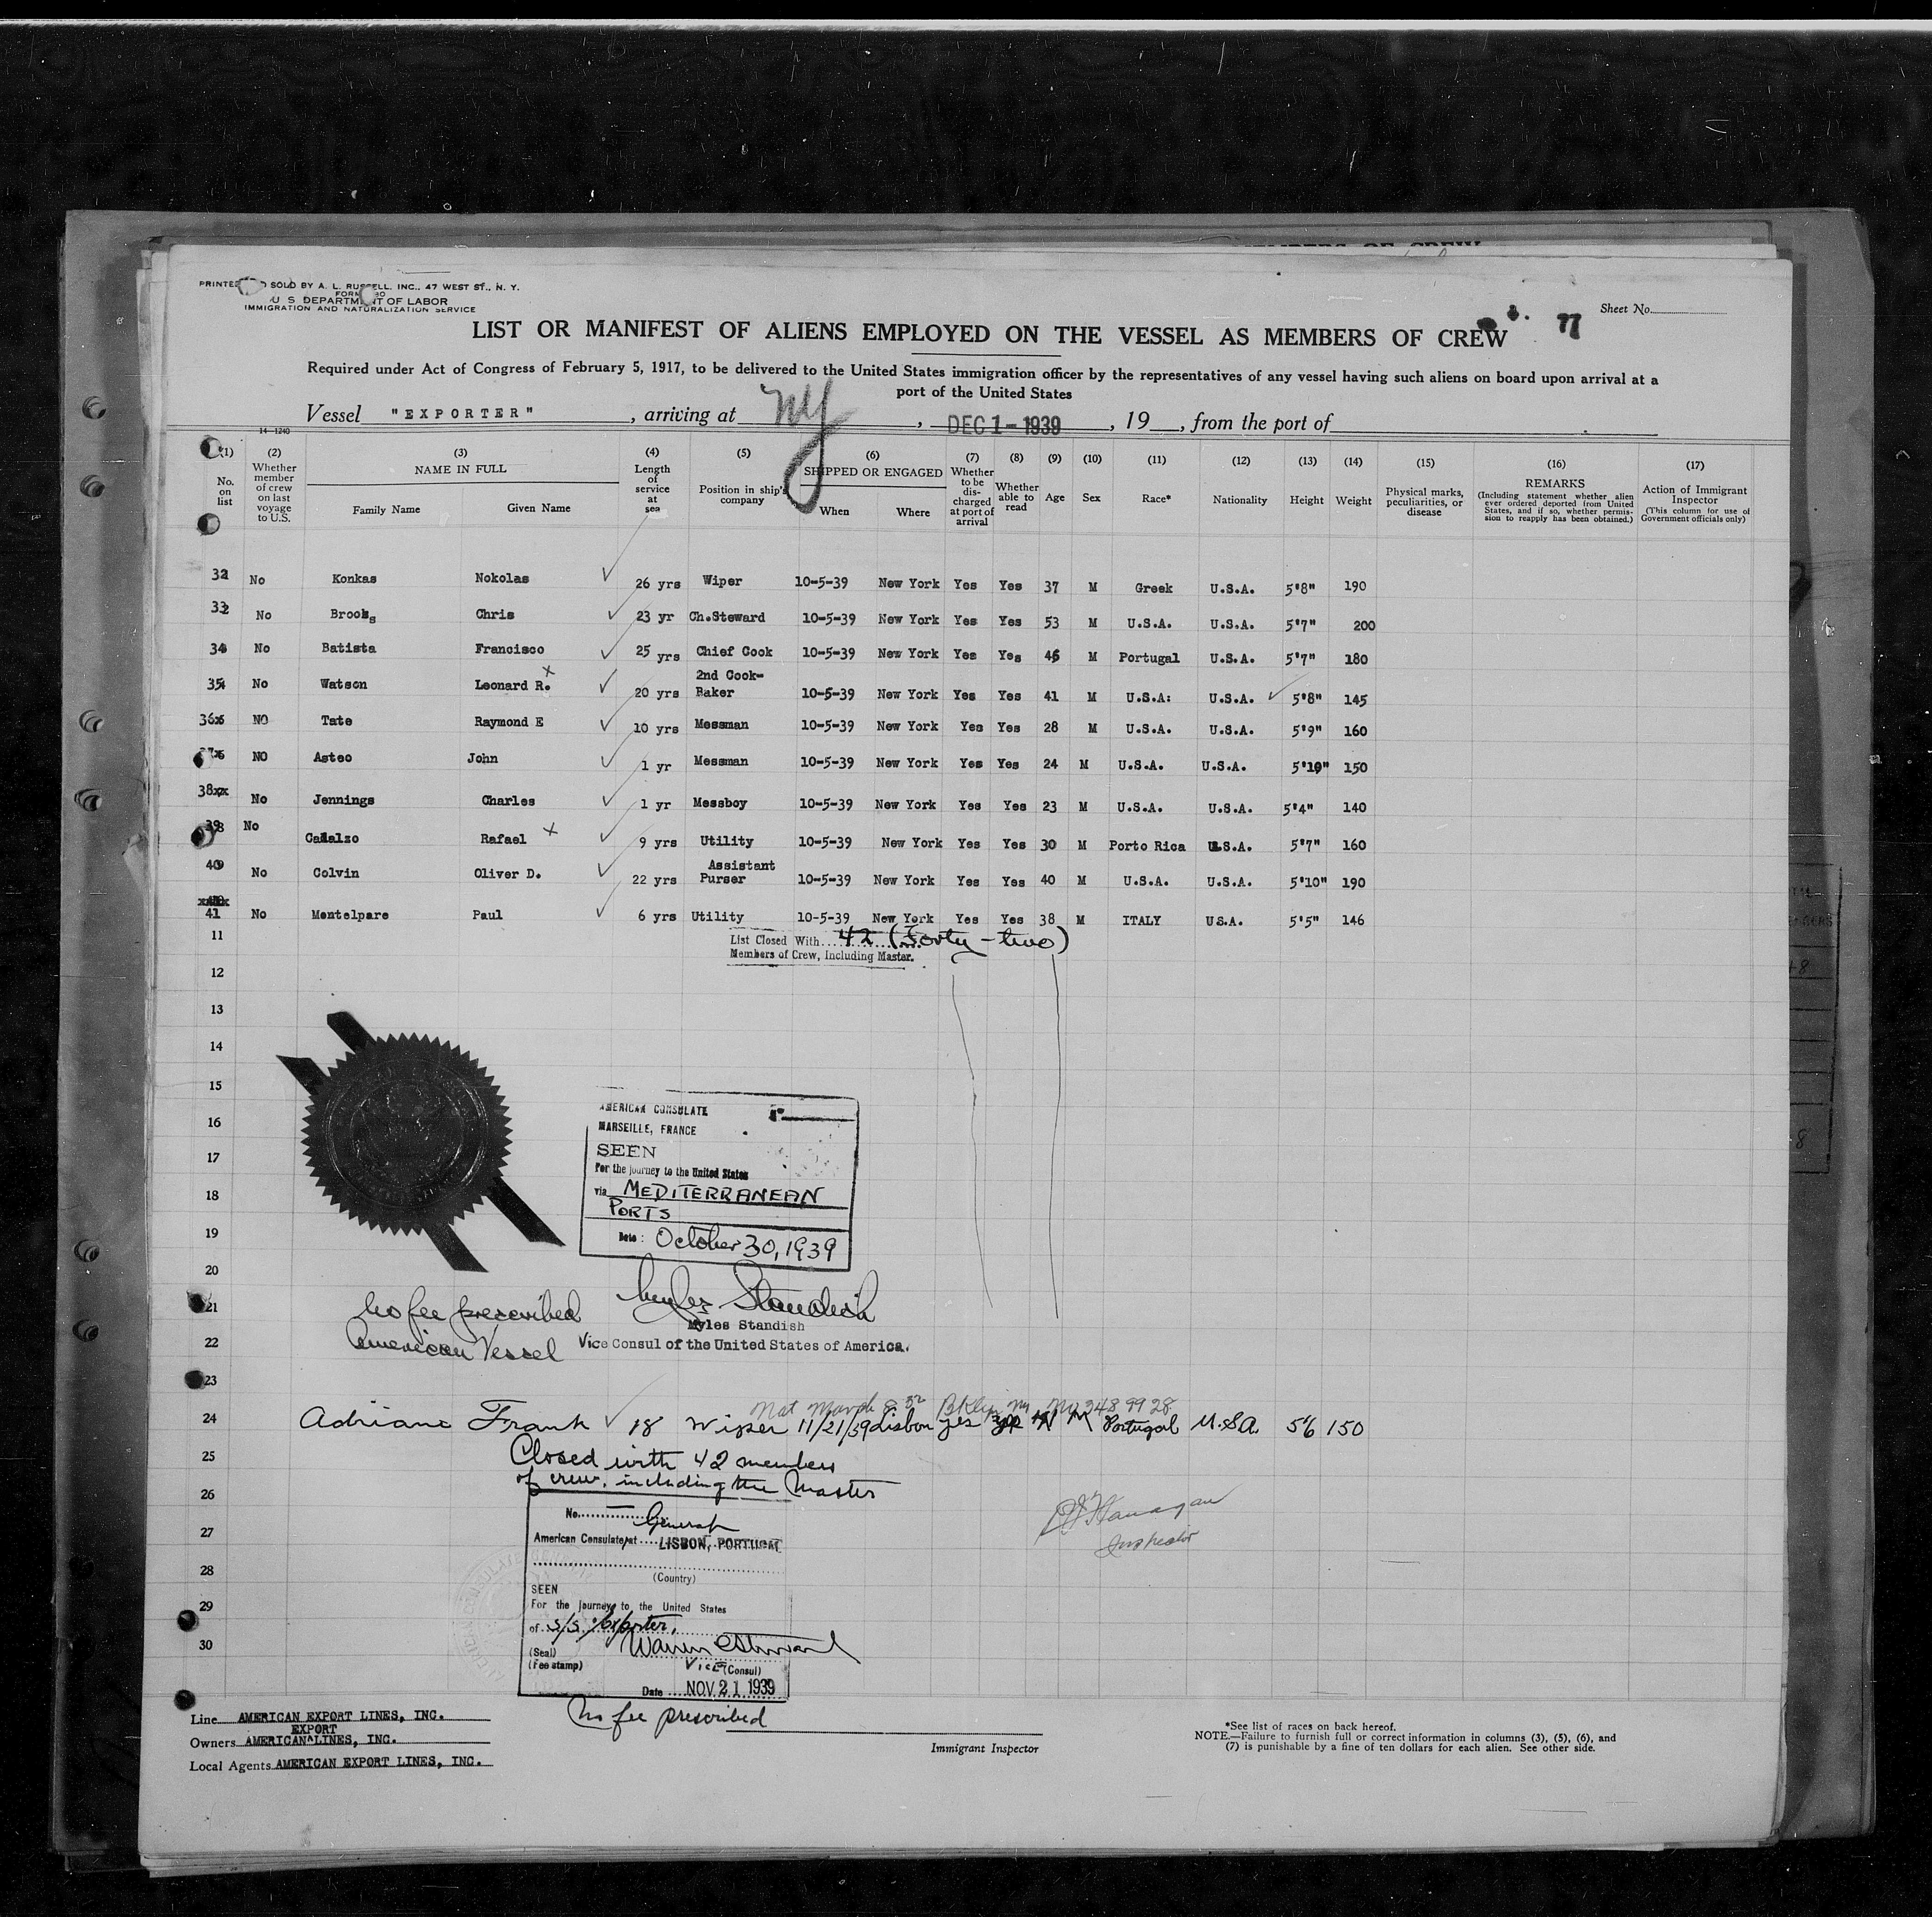 PRINTED SOLD BY A. L. RUSSELL, INC., 47 WEST ST., N. Y.
FORM
U S DEPARTMENT OF LABOR
IMMIGRATION AND NATURALIZATION SERVICE
Sheet No.
77
LIST OR MANIFEST OF ALIENS EMPLOYED ON THE VESSEL AS MEMBERS OF CREW
Required under Act of Congress of February 5, 1917, to be delivered to the United States immigration officer by the representatives of any vessel having such aliens on board upon arrival at a
port of the United States
Vessel "EXPORTER", arriving at NY, DEC 1-1939, 19, from the port of
14-1240
(1) (2) (3) (4) (5) (6) (7) (8) (9) (10) (11) (12) (13) (14) (15) (16) (17)
No. on list
Whether member of crew on last voyage to U.S.
NAME IN FULL
Family Name Given Name
Length of service at sea
Position in ship's company
SHIPPED OR ENGAGED
When Where
Whether to be discharged at port of arrival
Whether able to read
Age
Sex
Race*
Nationality
Height
Weight
Physical marks, peculiarities, or disease
REMARKS
(Including statement whether alien ever ordered deported from United States, and if so, whether permission to reapply has been obtained.)
Action of Immigrant Inspector
(This column for use of Government officials only)
32 No Konkas Nokolas 26 yrs Wiper 10-5-39 New York Yes Yes 37 M Greek U.S.A. 5'8" 190
33 No Brooks Chris 23 yr Ch.Steward 10-5-39 New York Yes Yes 53 M U.S.A. U.S.A. 5'7" 200
34 No Batista Francisco 25 yrs Chief Cook 10-5-39 New York Yes Yes 46 M Portugal U.S.A. 5'7" 180
35 No Watson Leonard R. 20 yrs 2nd Cook-Baker 10-5-39 New York Yes Yes 41 M U.S.A: U.S.A. 5'8" 145
36 NO Tate Raymond E 10 yrs Messman 10-5-39 New York Yes Yes 28 M U.S.A. U.S.A. 5'9" 160
37 NO Asteo John 1 yr Messman 10-5-39 New York Yes Yes 24 M U.S.A. U.S.A. 5'10" 150
38 No Jennings Charles 1 yr Messboy 10-5-39 New York Yes Yes 23 M U.S.A. U.S.A. 5'4" 140
39 No Rafael 9 yrs Utility 10-5-39 New York Yes Yes 30 M Porto Rica U.S.A. 5'7" 160
40 No Colvin Oliver D. 22 yrs Assistant Purser 10-5-39 New York Yes Yes 40 M U.S.A. U.S.A. 5'10" 190
41 No Montelpare Paul 6 yrs Utility 10-5-39 New York Yes Yes 38 M ITALY USA. 5'5" 146
11
List Closed With 42 (Forty-two)
Members of Crew, Including Master.
12
13
14
15
AMERICAN CONSULATE
MARSEILLE, FRANCE
16
SEEN
17
For the journey to the United States
via MEDITERRANEAN
18
PORTS
19
Date: October 30, 1939
20
Myles Standish
21
No fee prescribed
Myles Standish
22
American Vessel
Vice Consul of the United States of America.
23
Nat March 8 32 Bklyn Ny No 3489928
24 Adriano Frank 18 Wiper 11/21/39 Lisbon yes yes M Portugal U.S.A. 5'6 150
25
Closed with 42 members
of crew, including the Master
26
No.
General
27
American Consulate at LISBON, PORTUGAL
Flanagan
Inspector
28
(Country)
SEEN
29
For the journey to the United States
of S/S. Exporter.
30
(Seal)
(Fee stamp)
Vice (Consul)
Date NOV 21 1939
No fee prescribed
Line AMERICAN EXPORT LINES, INC.
EXPORT
Owners AMERICAN^LINES, INC.
Local Agents AMERICAN EXPORT LINES, INC.
Immigrant Inspector
*See list of races on back hereof.
NOTE.—Failure to furnish full or correct information in columns (3), (5), (6), and
(7) is punishable by a fine of ten dollars for each alien. See other side.